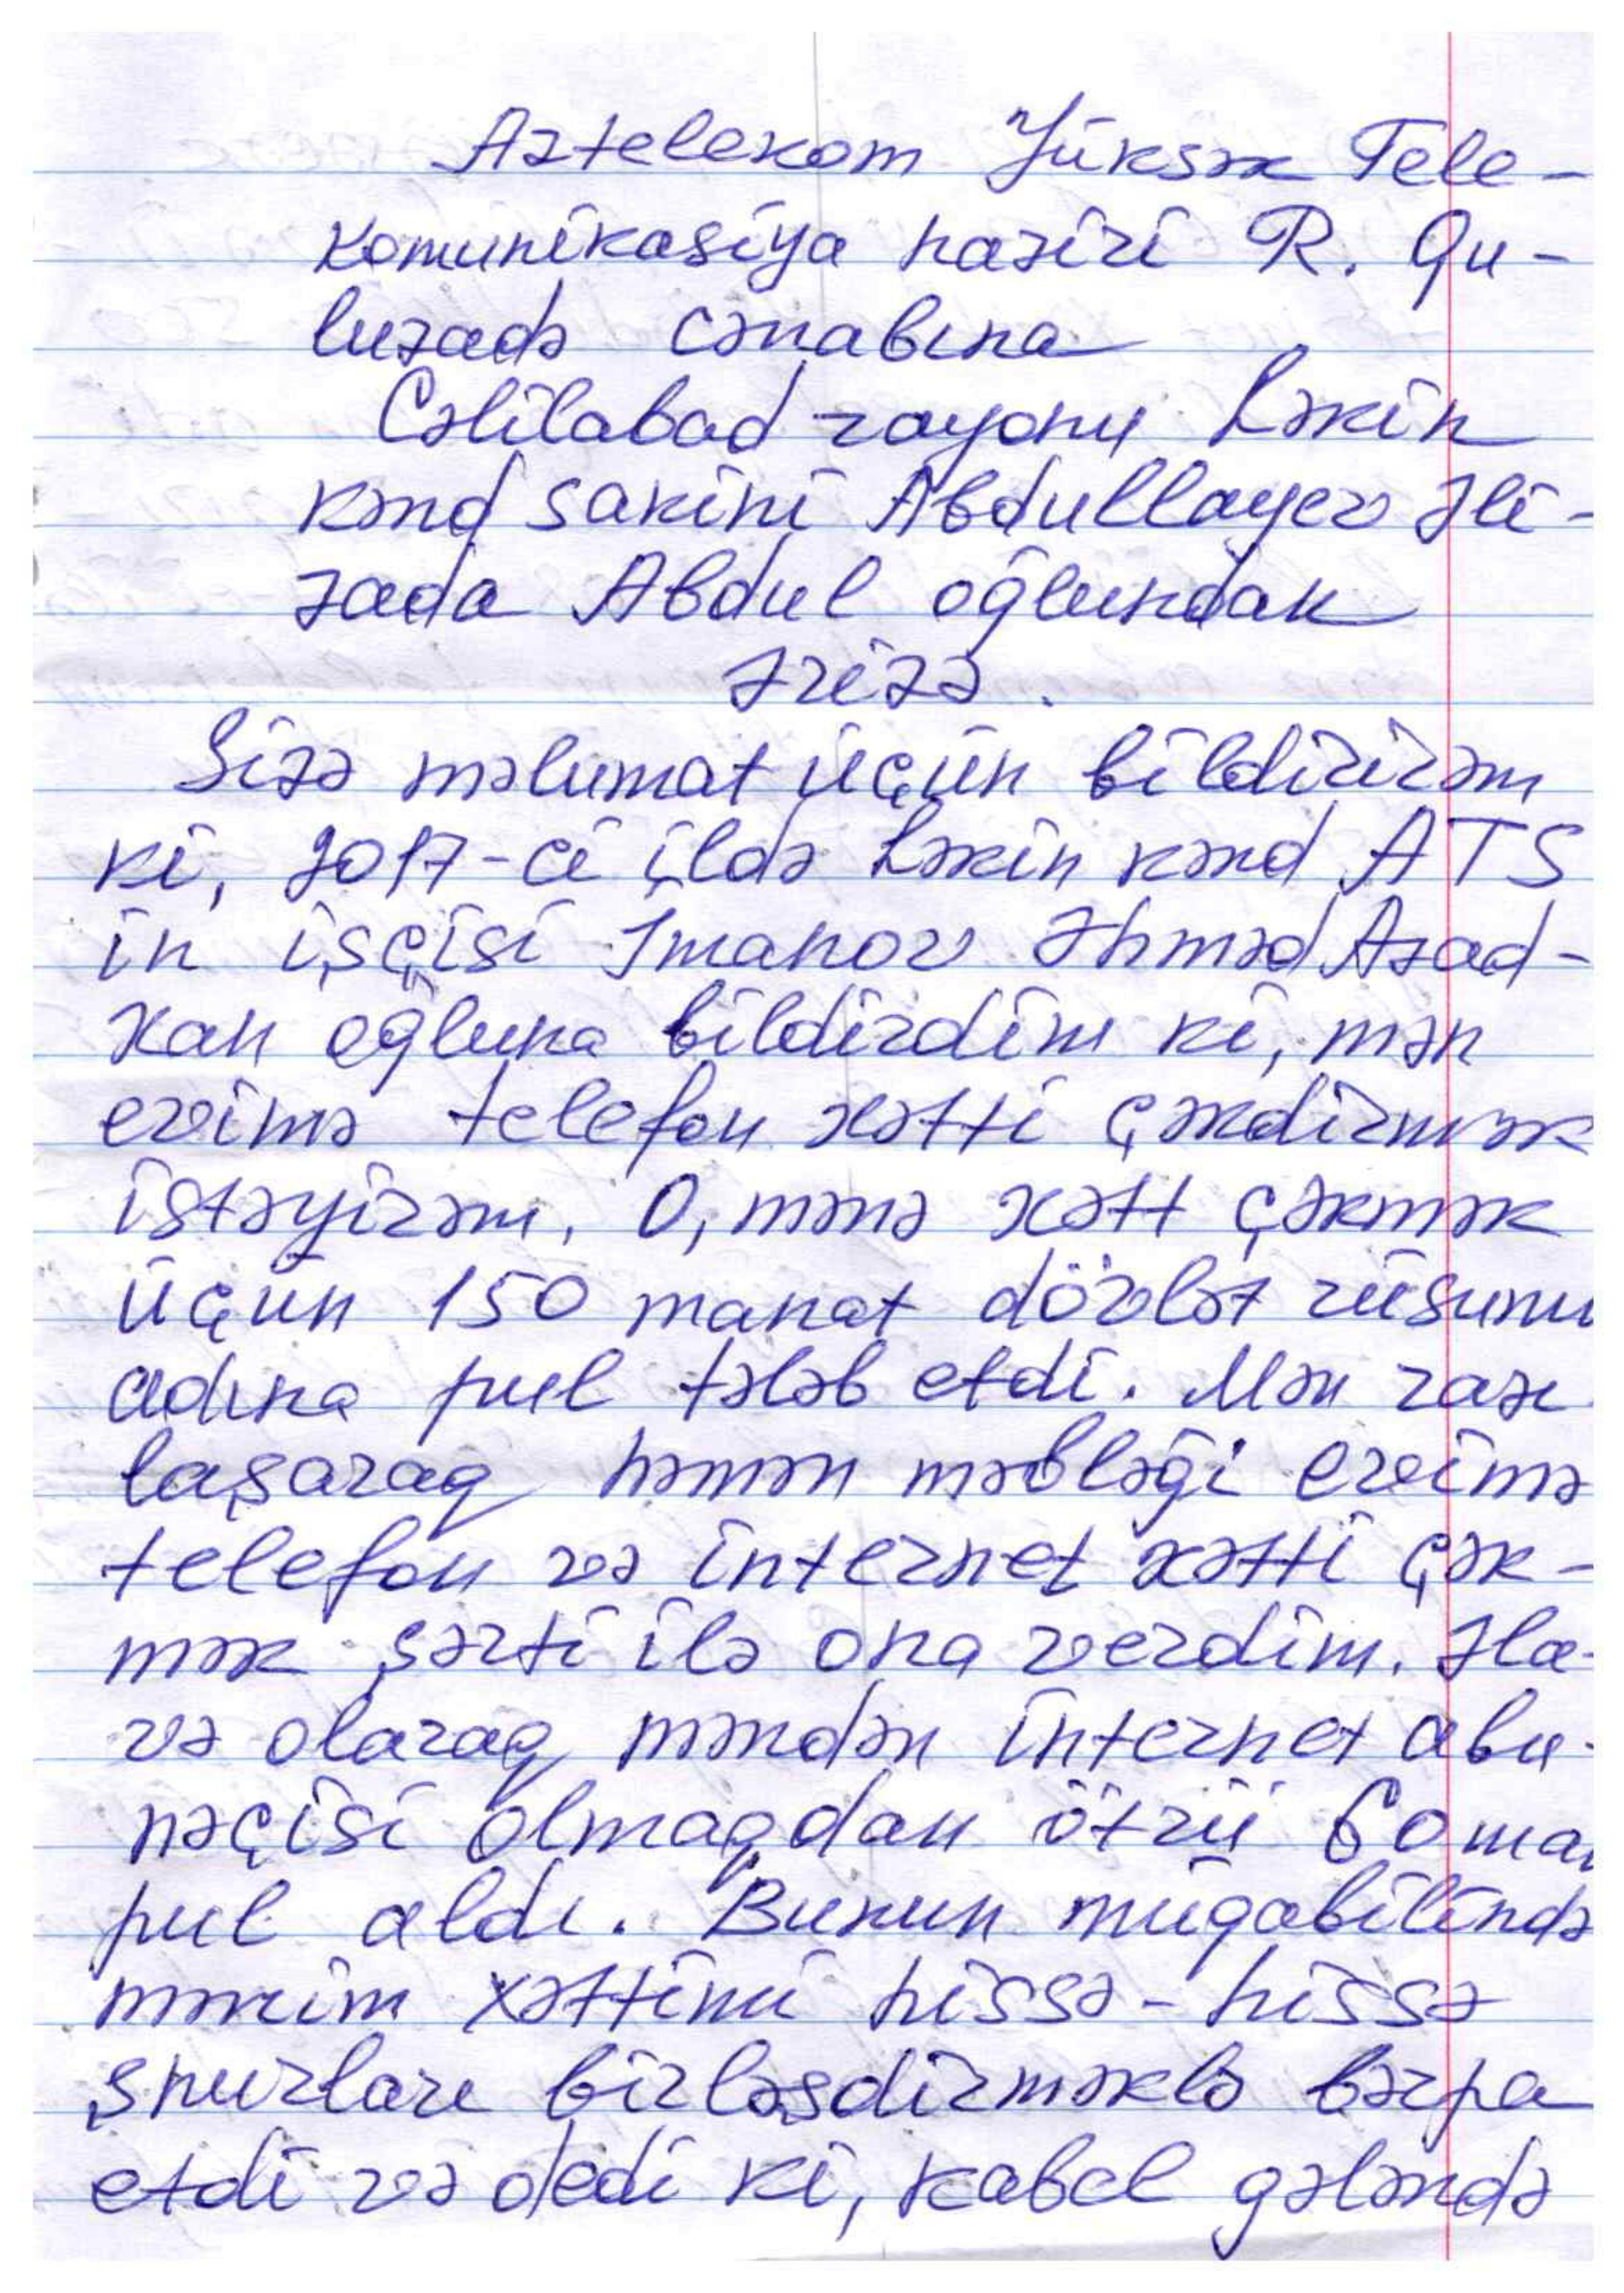 Aztelekom Yüksək Tele-
komunikasiya naziri R. Qu-
luzadə cənabına
Cəlilabad rayonu Ləkin
kənd sakini Abdullayev Əli-
zada Abdul oğlundan
Ərizə.
Sizə məlumat üçün bildirirəm
ki, 2017-ci ildə Ləkin kənd ATS
in işçisi İmanov Əhməd Azad-
xan oğluna bildirdim ki, mən
evimə telefon xətti çəkdirmək
istəyirəm. O, mənə xətt çəkmək
üçün 150 manat dövlət rüsumu
adına pul tələb etdi. Mən razı
laşaraq həmən məbləği evimə
telefon və internet xətti çək-
mək şərti ilə ona verdim. Əla-
və olaraq məndən internet abu-
nəçisi olmaqdan ötrü 60 ma
pul aldı. Bunun müqabilində
mənim xəttimi hissə-hissə
şnurları birləşdirməklə bərpa
etdi və dedi ki, kabel gələndə